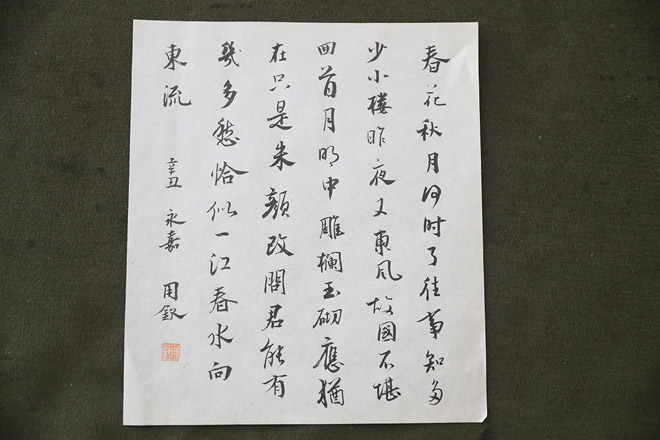 春花秋月何时了往事知多
少小楼昨夜又東风故國不堪
回首月明中雕栏玉砌應猶
在只是朱颜改問君能有
幾多愁恰似一江春水向
東流
辛丑 永嘉 周钦